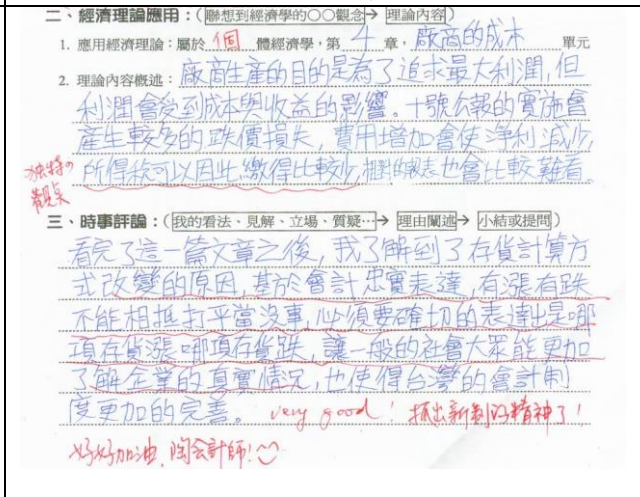 二、經濟理論應用：(聯想到經濟學的○○觀念→ 理論內容)
1. 應用經濟理論：屬於 個 體經濟學，第 4 章，廠商的成本 單元
2. 理論內容概述：廠商生產的目的是為了追求最大利潤，但
利潤會受到成本與收益的影響。十號公報的實施會
產生較多的跌價損失，費用增加會使淨利減少，
所得稅可以因此繳得比較少，相對的報表也會比較難看。
独特の
觀點
三、時事評論：(我的看法、見解、立場、質疑…→ 理由闡述→ 小結或提問)
看完了這一篇文章之後，我了解到了存貨計算方
式改變的原因，基於會計忠實表達，有漲有跌
不能相抵打平當沒事，必須要確切的表達出是哪
項存貨漲哪項存貨跌，讓一般的社會大眾能更加
了解企業的真實情況，也使得台灣的會計制
度更加的完善。 very good！ 抓出新制的精神了！
好好加油，陶會計師！